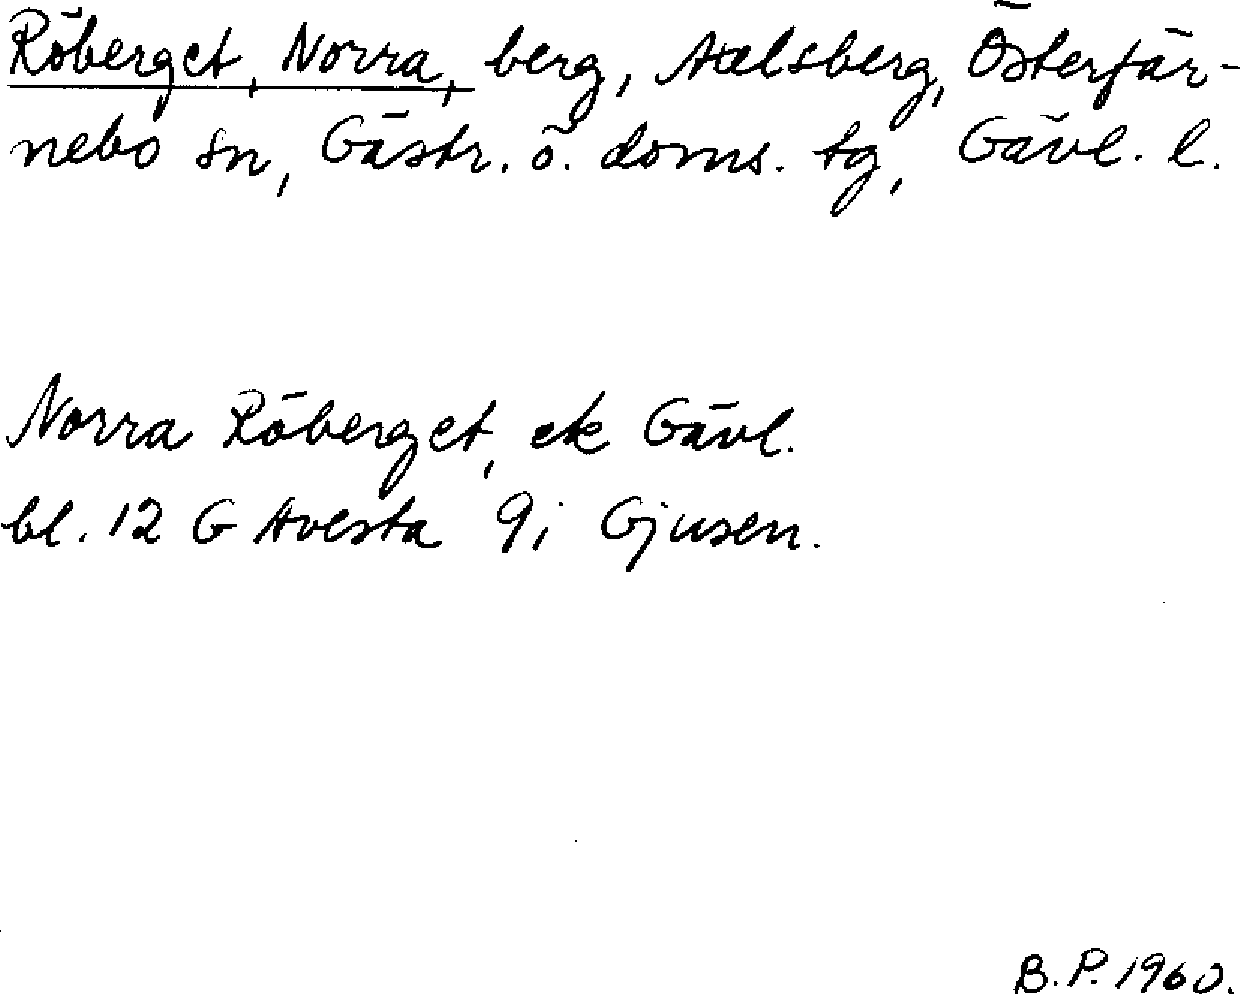 Röberget, Norra, berg, Axelsberg, Österfär-
nebo sn, Gästr. ö. doms. tg, Gävl. l.
Norra Röberget, ek Gävl.
bl. 12 G Avesta 9i Gjusen.
B.P. 1960.